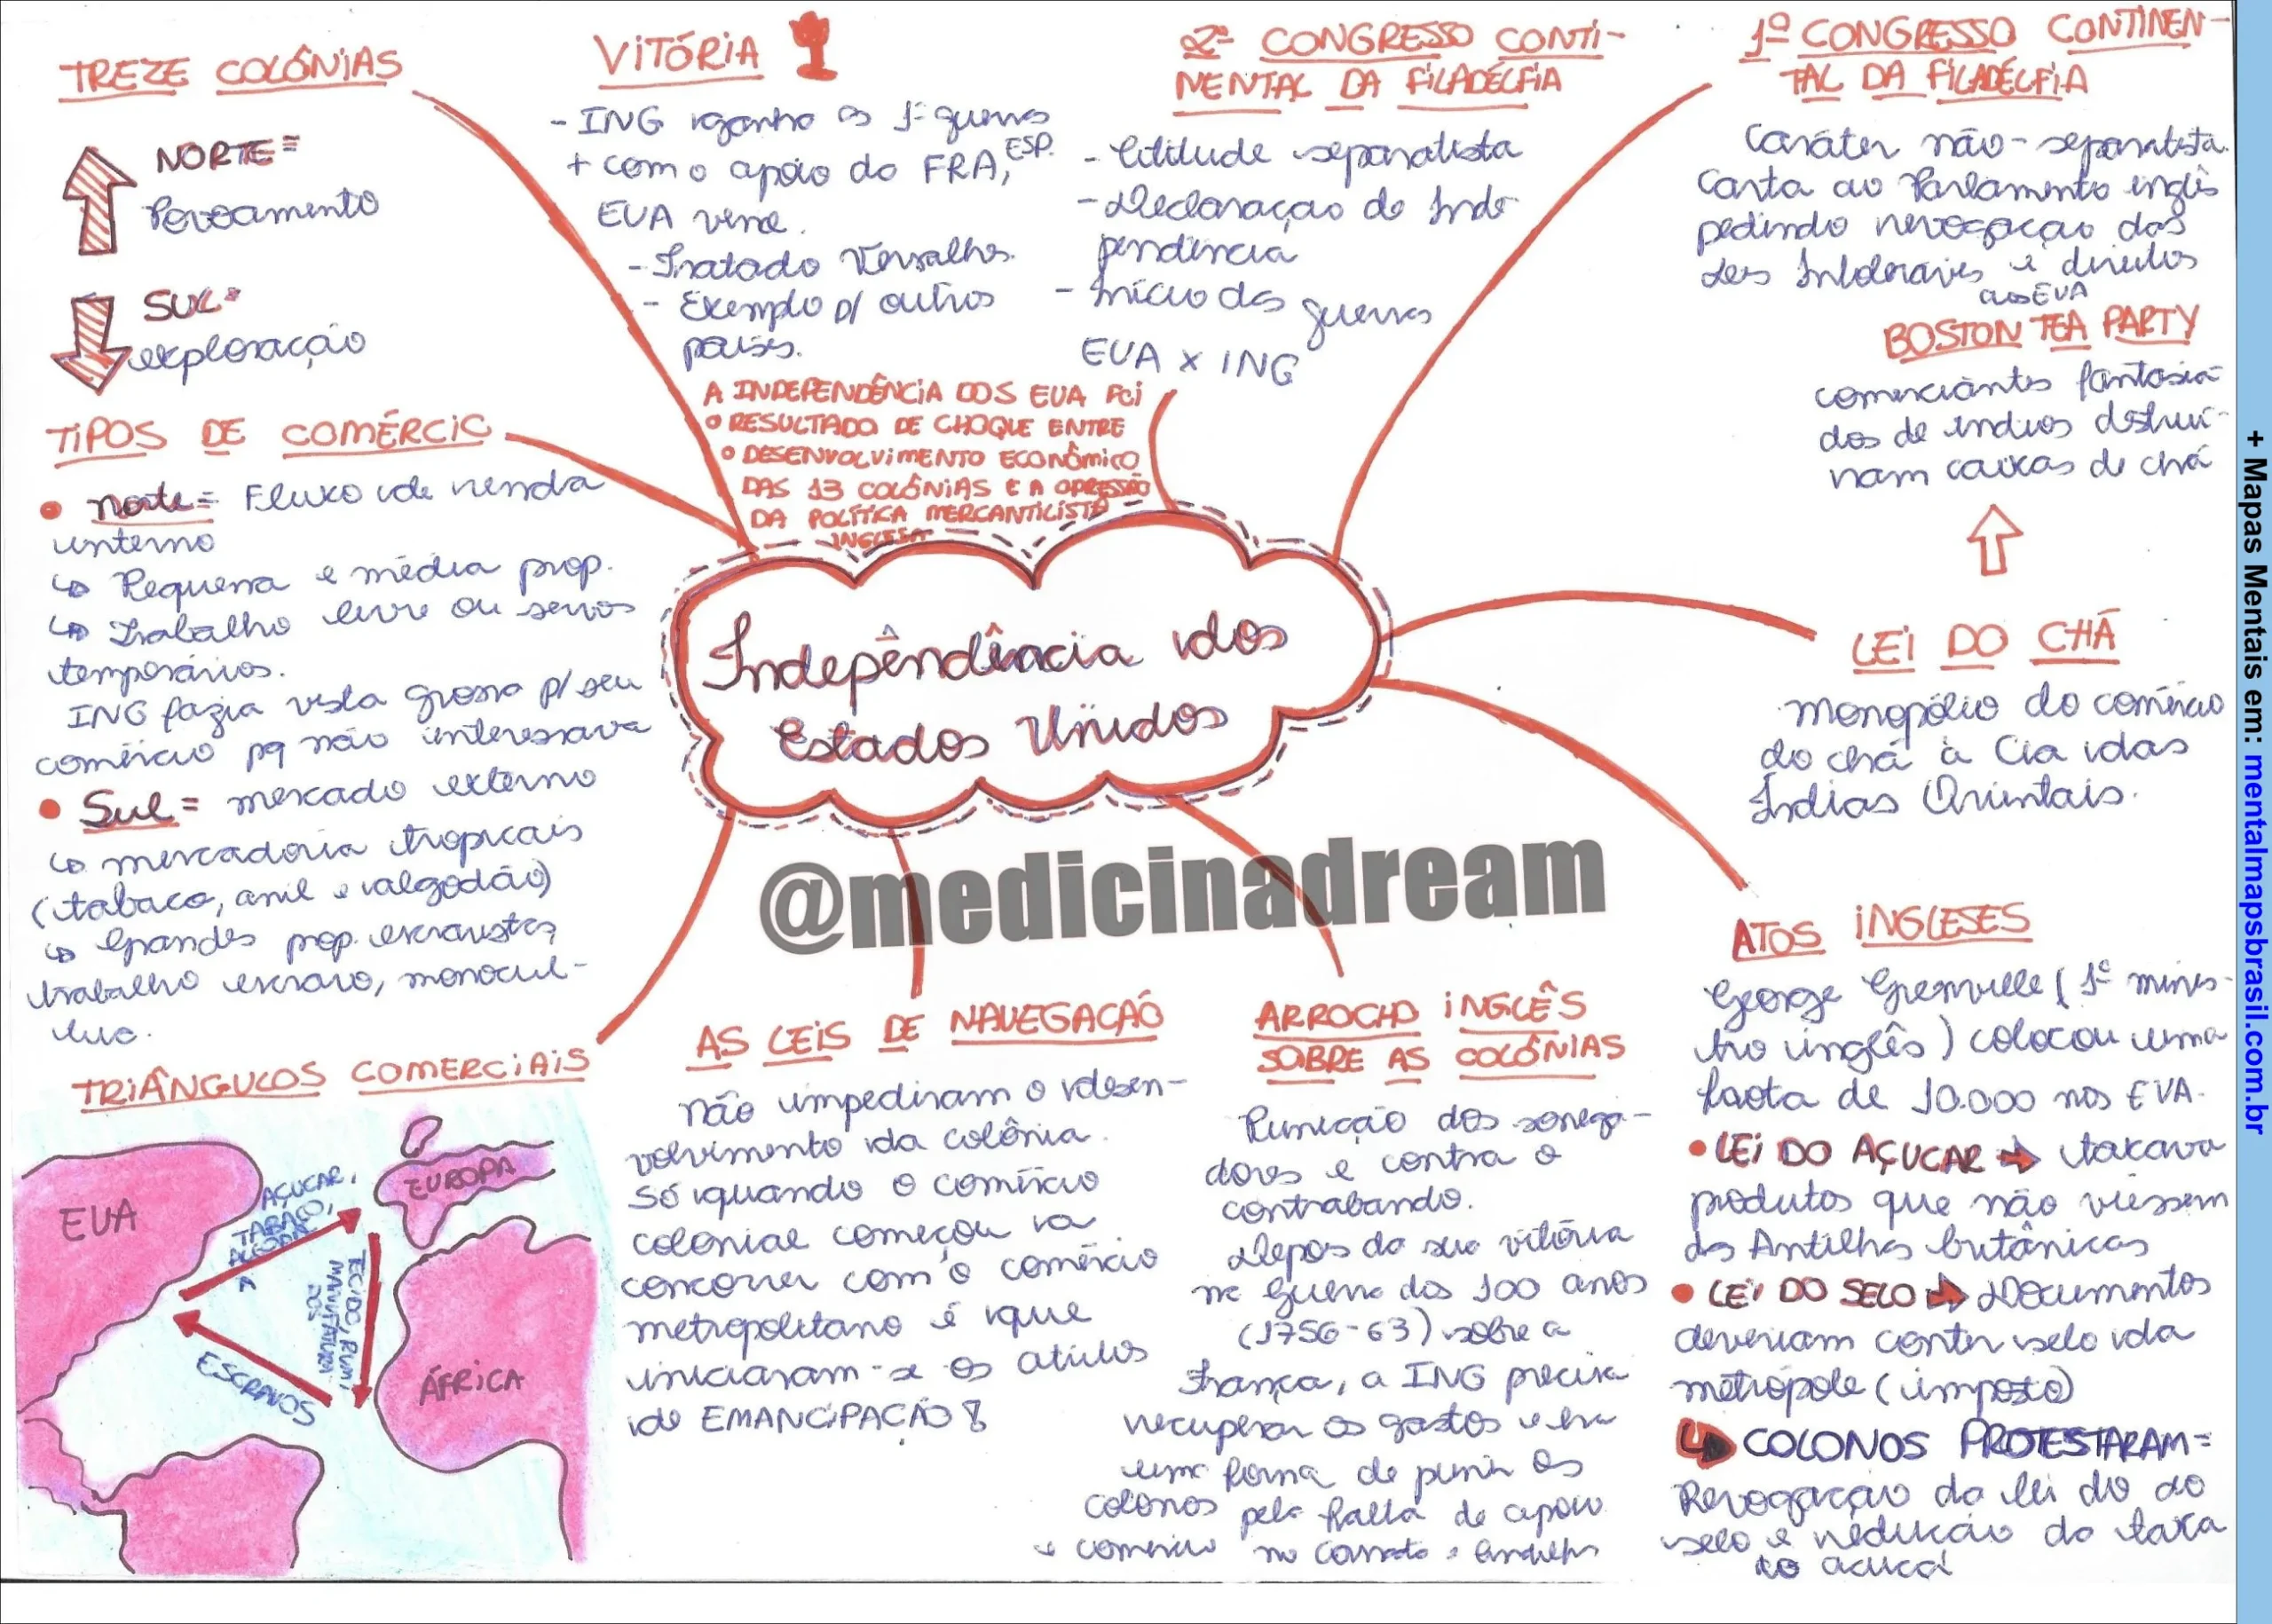 TREZE COLÔNIAS
NORTE =
Povoamento
SUL =
exploração
TIPOS DE COMÉRCIO
• norte = Fluxo de renda
interno
↳ Pequena e média prop.
↳ Trabalho livre ou servos
temporários.
ING fazia vista grossa p/ seu
comércio pq não interessava
• Sul = mercado externo
↳ mercadoria tropicais
(tabaco, anil e algodão)
↳ Grandes prop. escravistas,
trabalho escravo, monocul-
tura.
TRIÂNGULOS COMERCIAIS
EUA
EUROPA
ÁFRICA
AÇUCAR,
TABACO,
TECIDO, RUM,
MANUFATURA
DOS
ESCRAVOS
VITÓRIA
- ING ganha as 1ª guerras
+ com o apoio da FRA, ESP.
EUA vence.
- Tratado Versalhes.
- Exemplo p/ outros
países.
2º CONGRESSO CONTI-
NENTAL DA FILADÉLFIA
- Atitude separatista
- Declaração de Inde
pendência
- Início das guerras
EUA x ING
1º CONGRESSO CONTINEN-
TAL DA FILADÉLFIA
Caráter não-separatista.
Carta ao Parlamento inglês
pedindo revogação das
Leis Intoleráveis e direitos
aos EUA
BOSTON TEA PARTY
comerciantes fantasia-
dos de índios destruí-
ram caixas de chá
LEI DO CHÁ
monopólio do comércio
do chá à Cia das
Índias Orientais.
A INDEPENDÊNCIA DOS EUA FOI
O RESULTADO DE CHOQUE ENTRE
O DESENVOLVIMENTO ECONÔMICO
DAS 13 COLÔNIAS E A OPRESSÃO
DA POLÍTICA MERCANTILISTA
INGLESA
Indepêndência dos
Estados Unidos
@medicinadream
AS LEIS DE NAVEGAÇÃO
não impediram o desen-
volvimento da colônia.
Só quando o comércio
colonial começou a
concorrer com o comércio
metropolitano é que
iniciaram-se os atritos
de EMANCIPAÇÃO!
ARROCHO INGLÊS
SOBRE AS COLÔNIAS
Punição dos sonega-
dores e contra o
contrabando.
Depois da sua vitória
na Guerra dos 100 anos
(1756-63) sobre a
França, a ING precisa
recuperar os gastos e era
uma forma de punir os
colonos pela falta de apoio
e comércio no Canadá e Antilhas
ATOS INGLESES
George Grenville (1º minis-
tro inglês) colocou uma
frota de 10.000 nos EUA.
• LEI DO AÇUCAR ➔ taxava
produtos que não viessem
das Antilhas britânicas
• LEI DO SELO ➔ Documentos
deveriam conter selo da
metrópole (imposto)
↳ COLONOS PROTESTARAM =
Revogação da lei do do
selo e redução da taxa
do acucar
+ Mapas Mentais em: mentalmapsbrasil.com.br